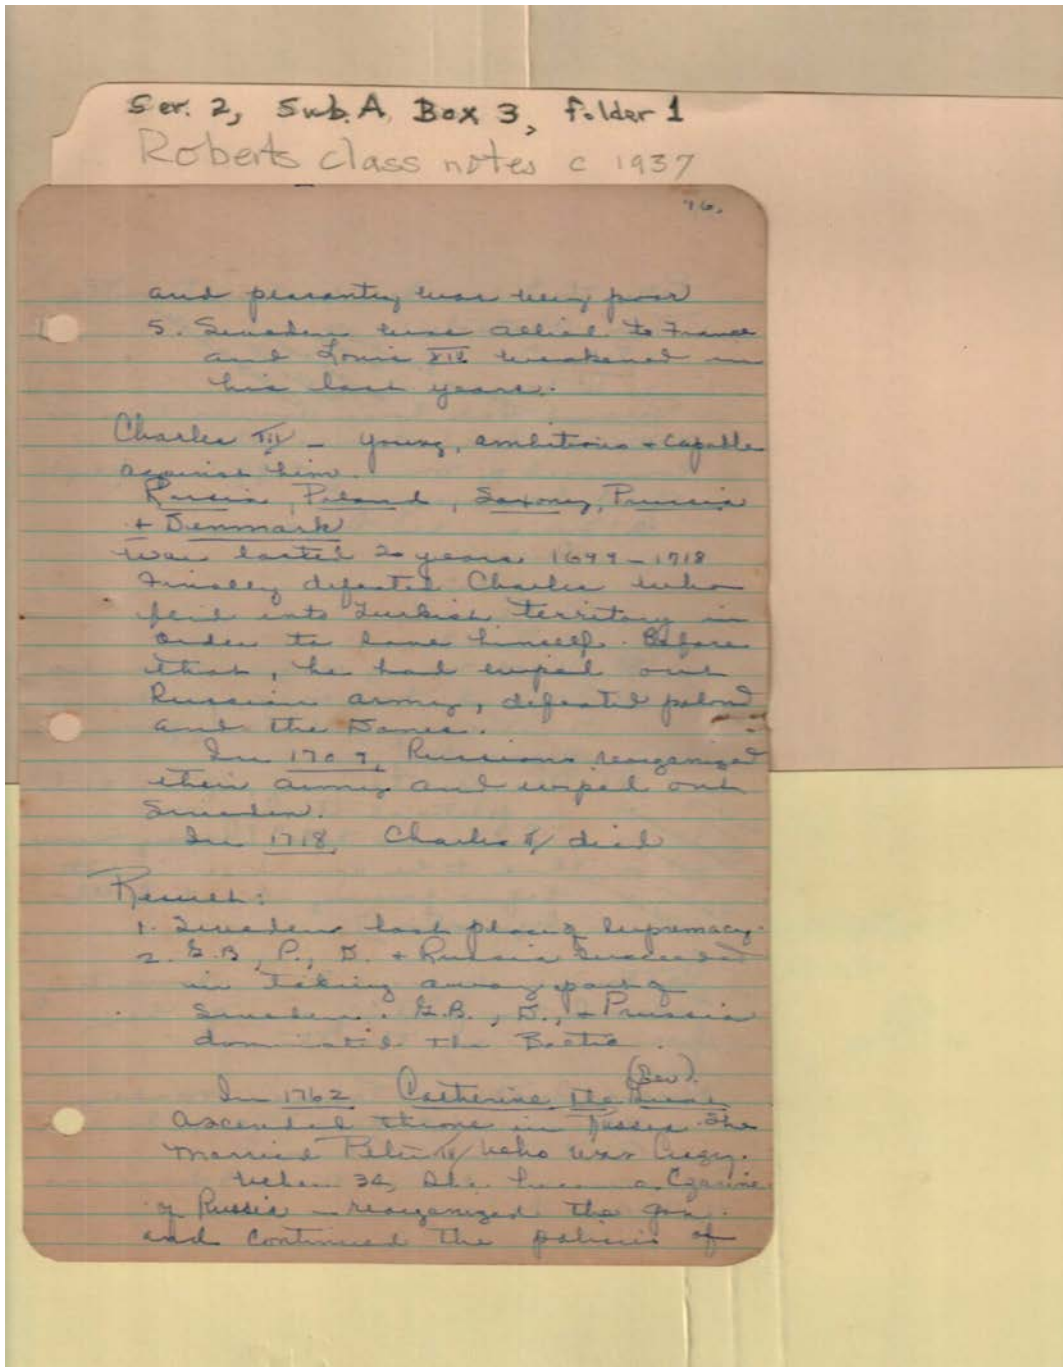 Ser. 2, Sub. A, Box 3, folder 1
Roberts class notes c 1937
76.
and peasantry was very poor
5. Sweden was allied to France
and Louis XIV weakened in
his last years.
Charles XII – young, ambitious + capable
against him.
Russia, Poland, Saxony, Prussia
+ Denmark
War lasted 20 years 1699–1718
Finally defeated Charles who
fled into Turkish territory in
order to save himself. Before
that, he had wiped out
Russian army, defeated poland
and the Danes.
In 1709, Russians reorganized
their army and wiped out
Sweden.
In 1718, Charles died
Result:
1. Sweden lost place of supremacy.
2. G.B., P., D. + Russia succeeded
in taking away part of
Sweden. G.B., D., + Prussia
dominated the Baltic.
In 1762 Catherine the
ascended throne in Russia. She
married Peter III who was crazy.
When 34, she became Czarina
of Russia – reorganized the gov.
and continued the policies of